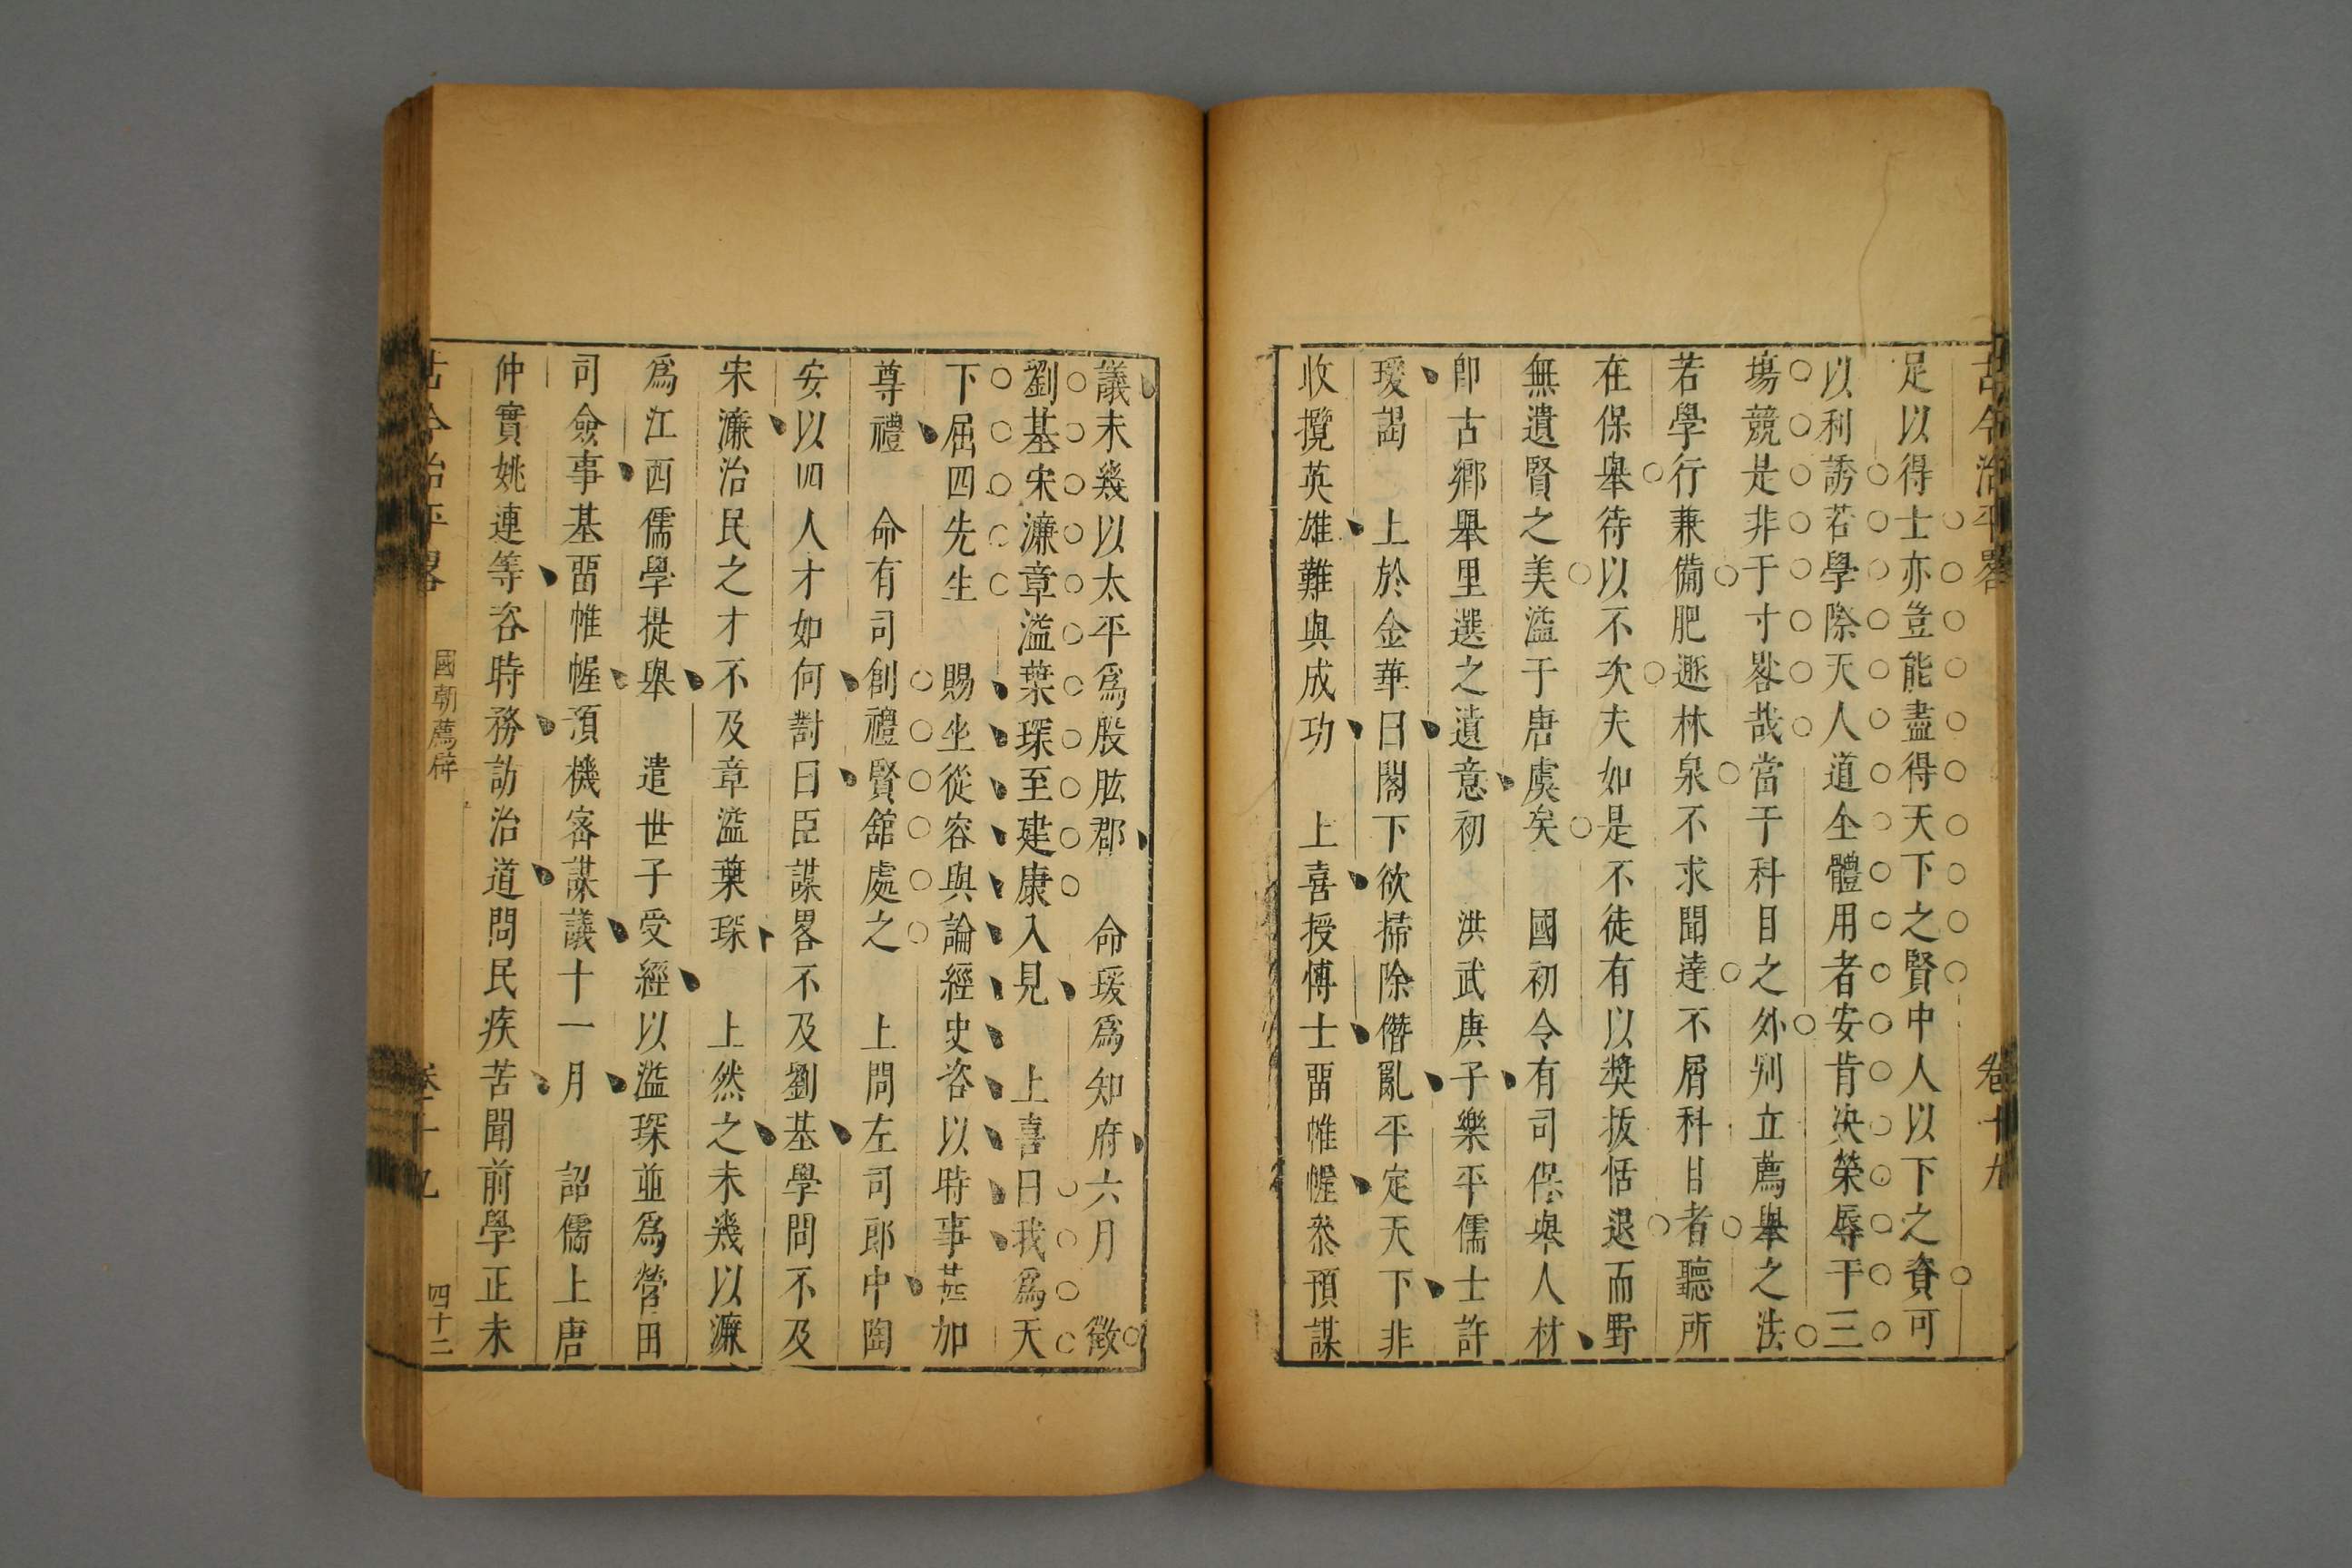 古今治平畧 卷十九
足以得士亦豈能盡得天下之賢中人以下之資可
以利誘若學際天人道全體用者安肯决榮辱于三
塲競是非于寸晷哉當于科目之外别立薦舉之法
若學行兼備肥遯林泉不求聞達不屑科目者聽所
在保舉待以不次夫如是不徒有以奬拔恬退而野
無遺賢之美溢于唐虞矣 國初令有司保舉人材
卽古鄉舉里選之遺意初 洪武庚子樂平儒士許
瑗謁 上於金華曰閣下欲掃除僭亂平定天下非
收攬英雄難與成功 上喜授博士畱帷幄叅預謀
議未幾以太平爲股肱郡 命瑗爲知府六月 徵
劉基宋濂章溢葉琛至建康入見 上喜曰我爲天
下屈四先生 賜坐從容與論經史咨以時事甚加
尊禮 命有司創禮賢舘處之 上問左司郎中陶
安以四人才如何對曰臣謀畧不及劉基學問不及
宋濂治民之才不及章溢葉琛 上然之未幾以濂
爲江西儒學提舉 遣世子受經以溢琛並爲營田
司僉事基畱帷幄預機密謀議十一月 詔儒士唐
仲實姚連等咨時務訪治道問民疾苦聞前學正未
古今治平畧 國朝薦辟 卷十九 四十二